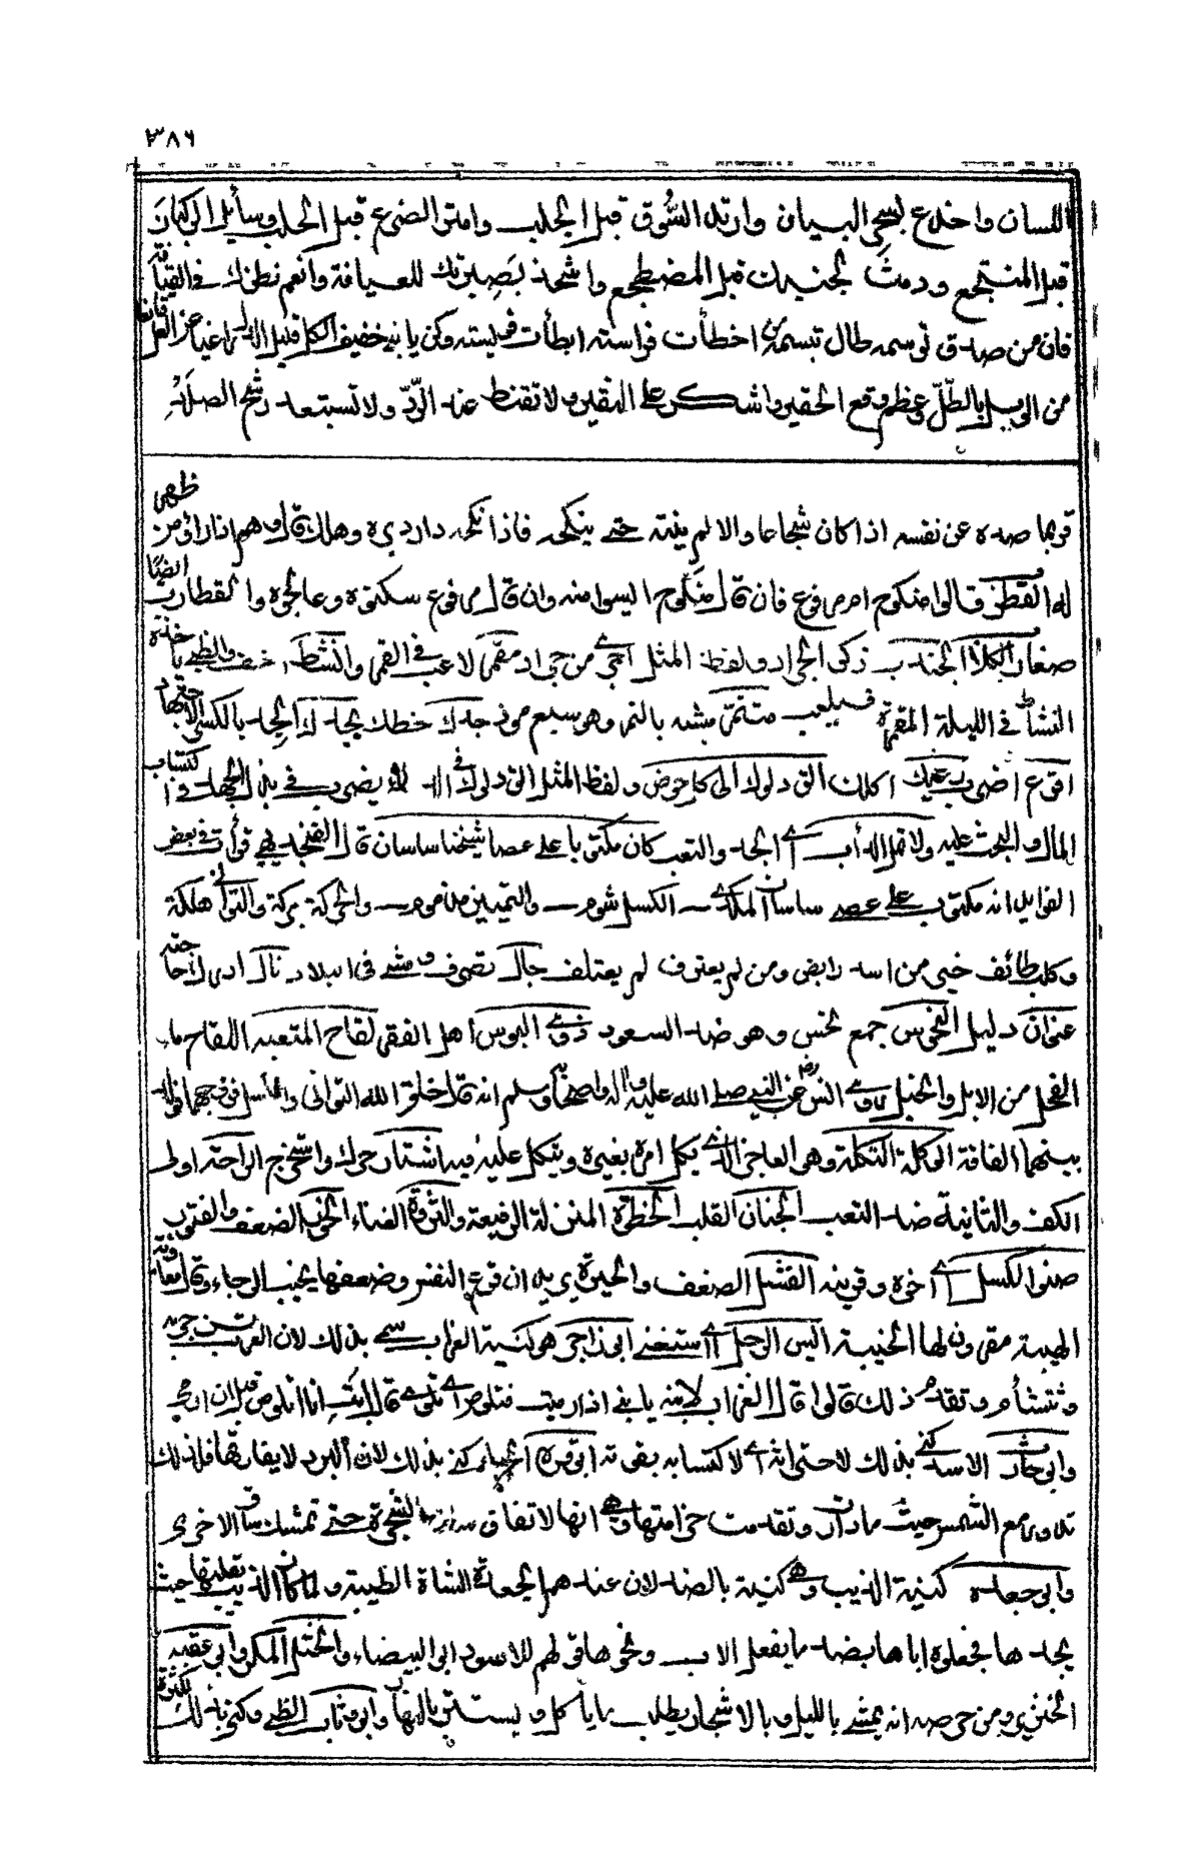 ٣٨٦
اللسان واخدع بسحر البيان وارتد السُّوق قبل الجلب وامتر الضرع قبل الحلب وسائل الركبان
قبل المنتجع ودمث لجنبك قبل المضطجع واشحذ بصيرتك للعيافة وانعم نظرك في القيافة
فان من صدق توسمه طال تبسمه ومن اخطأت فراسته ابطأت فريسته وكن يا بني خفيف الكل قليل الدل راغبا عن العل قانعا
من الوبل بالطل وعظم وقع الحقير واشكر على النقير ولا تقنط عند الرد ولا تستبعد رشح الصلد
فربما صده عن نفسه اذا كان شجاعا والا لم ينته حتى ينكحه فاذا نكحه دار دبره وهلك قال وهم اذا راوا من ظهر
له القطرب قالوا منكوح ام مروع فان قال منكوح ايسوا منه وان قال مروع سكنوه وعالجوه والقطارب ايضا
صغار الكلاب الجندب ذكر الجراد ولفظ المثل اسرى من جراد مقمرا لاعب في القمر والنشط خفيف والظبي ياخذه
النشاط في الليلة المقمرة فيلعب متنمرا مشبه بالنمر وهو سبع موذ جدك حظك بجدك الجد بالكسر الاجتهاد
اقرع اضرب رعيك اكلك الق دلوك الى كل حوض ولفظ المثل الق دلوك في الدلاء يضرب في بذل الجهد في اكتساب
المال والبحث عليه ولا تمل الدأب اي الجد والتعب كان مكتوبا على عصا شيخنا ساسان قال الفنجديهي قرأت في بعض
الفوايد انه مكتوب على عصى ساسان المكدي الكسل شوم والتمييز مذموم والحركة بركة والتواني هلكة
وكلب طائف خير من اسد رابض ومن لم يعترف لم يعتلف جال تصرف ومشى في البلاد نال ادرك حاجته
عنوان دليل النحوس جمع نحس وهو ضد السعود ذوي البوس اهل الفقر لقاح المتعبة اللقاح ماء
الفحل من الابل والخيل روى انس رض عن النبي صلى الله عليه واله واصحابه وسلم انه قال خلق الله التواني والكسل فزوجهما فولد
بينهما الفاقة الوكلة التكلة وهو العاجز الذي يكل امره بغيره ويتكل عليه فيه اشتار حرك واستخرج الراحة اولى
الكف والثانية ضد التعب الجنان القلب الخطرة المنزلة الرفيعة والثروة الغناء الخور الضعف والفتور
صنو الكسل اي اخوه وقرينه الفشل الضعف والحيرة يريد ان فزع النفس وضعفها يخيب الرجاء وقال معاوية
الهيبة مقرون لها الخيبة ايس الرجل استغن ابي زاجر هو كنية الغراب سمي بذلك لان العرب تزجر به
وتتشأم وتقدم ذلك قالوا قال الغراب لابنه يا بني اذا رميت فتلوص اي تلوى قال يا ابت انا اتلوص قبل ان ارمى
وابي حارث الاسد كنى بذلك لاحتراثه اي لاكتسابه بقوته ابي قرة الحرباء كنى بذلك لان البرد لا يفارقها فلذلك
تدور مع الشمس حيث ما دارت وتقدمت حزامتها وهي انها لا تفارق ساق الشجرة حتى تمسك ساق الاخرى
وابي جعدة كنية الذيب وهي كنية بالضد لان عندهم الجعدة الشاة الطيبة ولما كان الذيب يقتلها حيث
يجدها فجعلوه اباها بضد ما يفعل الاب ونحوها قولهم للاسود ابي البيضاء والختل المكر وابي عقبة
الخنزير ومن حرصه انه يمشي بالليل وبالاشجار يطلب ما يأكل ويستتر بالنهار وابي وثاب الظبي وكنى بذلك لكثرة